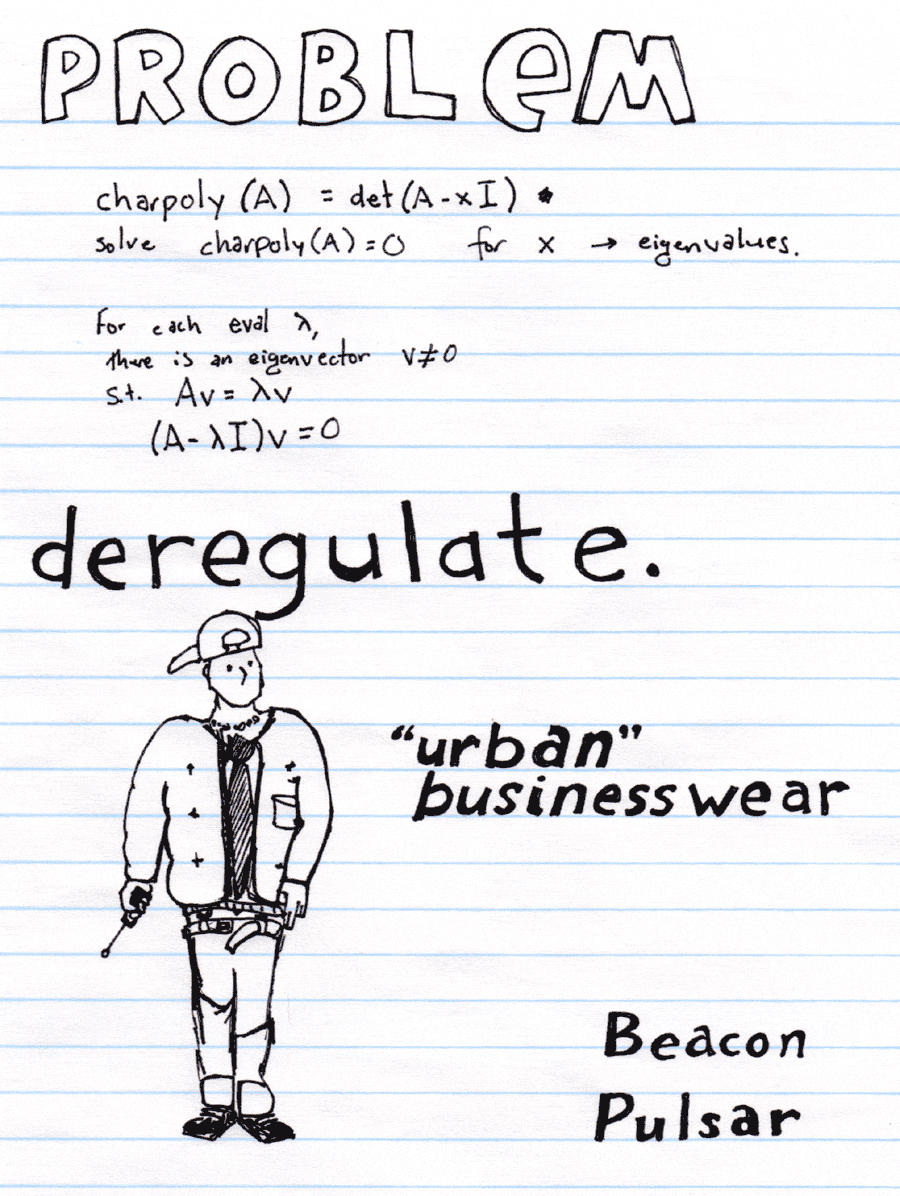 PROBLeM
charpoly (A) = det (A - xI)
solve charpoly (A) = 0 for x → eigenvalues.
For each eval λ,
there is an eigenvector v≠0
s.t. Av = λv
(A - λI)v = 0
deregulate.
"urban"
businesswear
Beacon
Pulsar